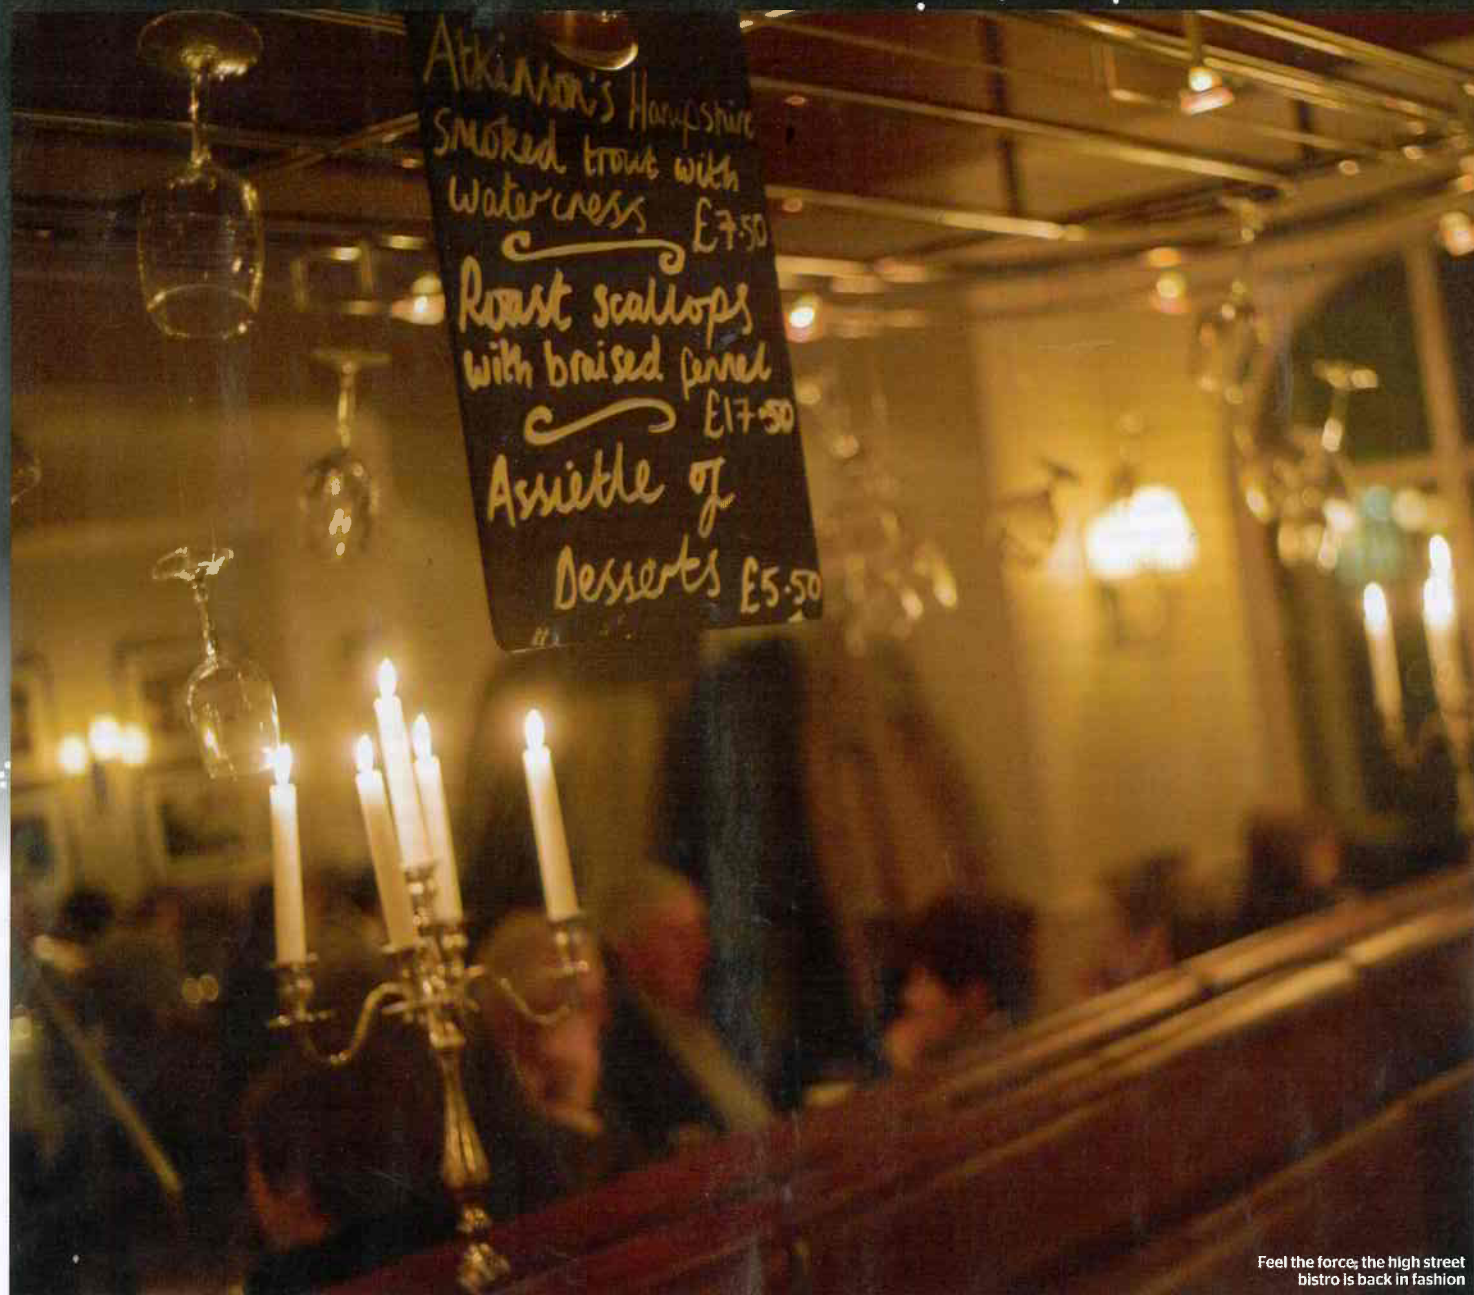 Atkinson's Hampshire
smoked trout with
watercress £7.50
Roast scallops
with braised fennel
£17.50
Assiette of
Desserts £5.50
Feel the force; the high street
bistro is back in fashion